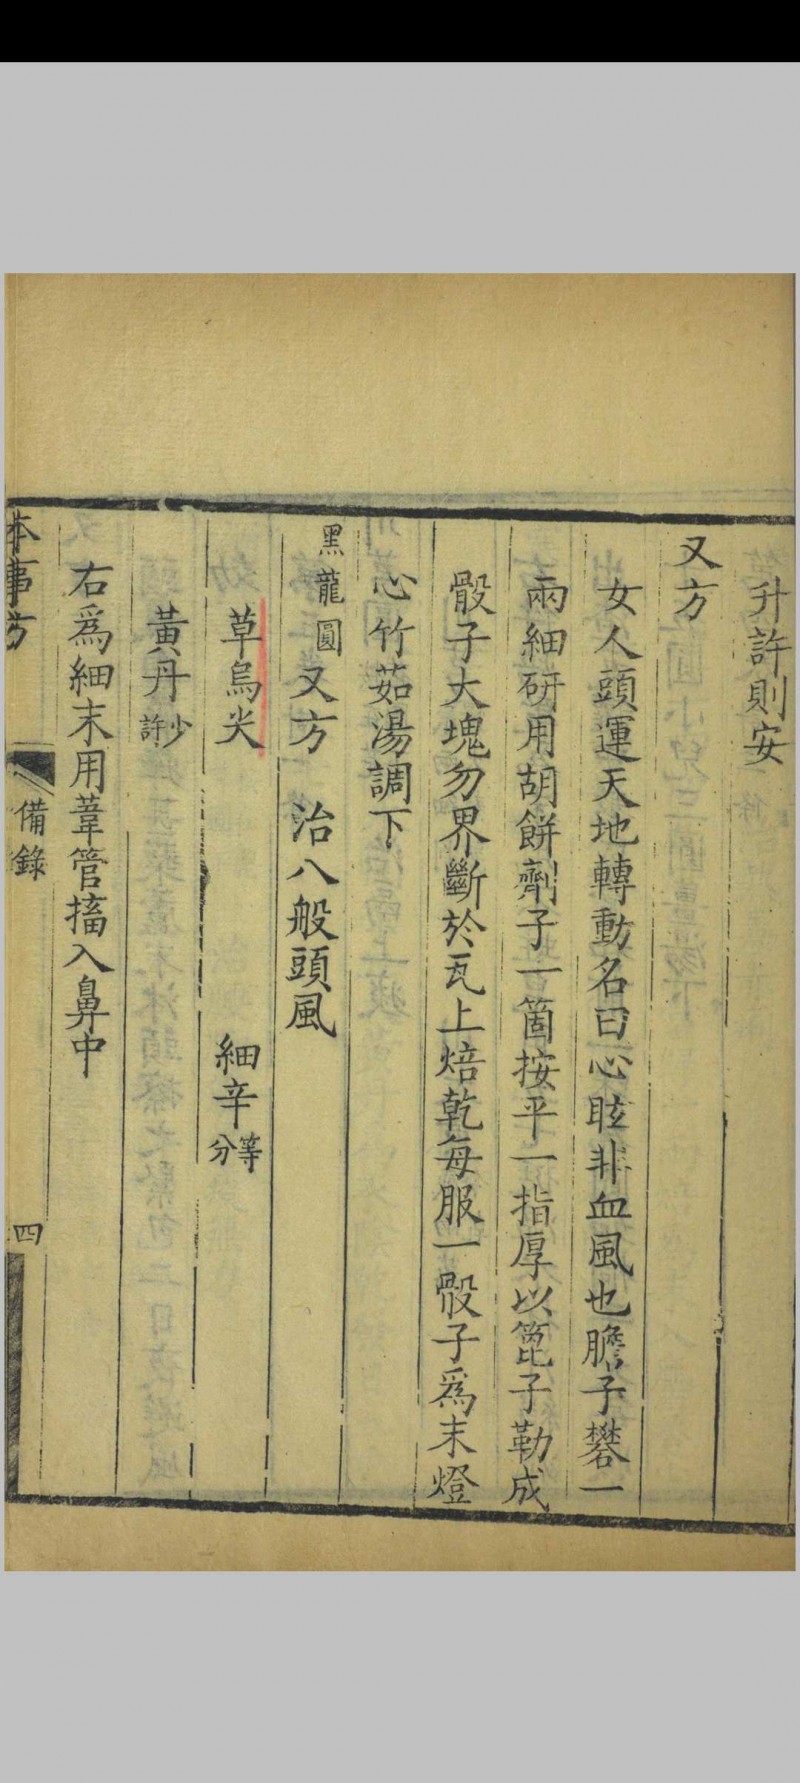 升許則安
又方
女人頭運天地轉動名曰心眩非血風也膽子礬一
兩細研用胡餅劑子一箇按平一指厚以篦子勒成
骰子大塊勿界斷於瓦上焙乾每服一骰子爲末燈
心竹茹湯調下
黑龍圓又方 治八般頭風
草烏尖 細辛等分
黃丹少許
右爲細末用葦管搐入鼻中
本事方 備錄 四